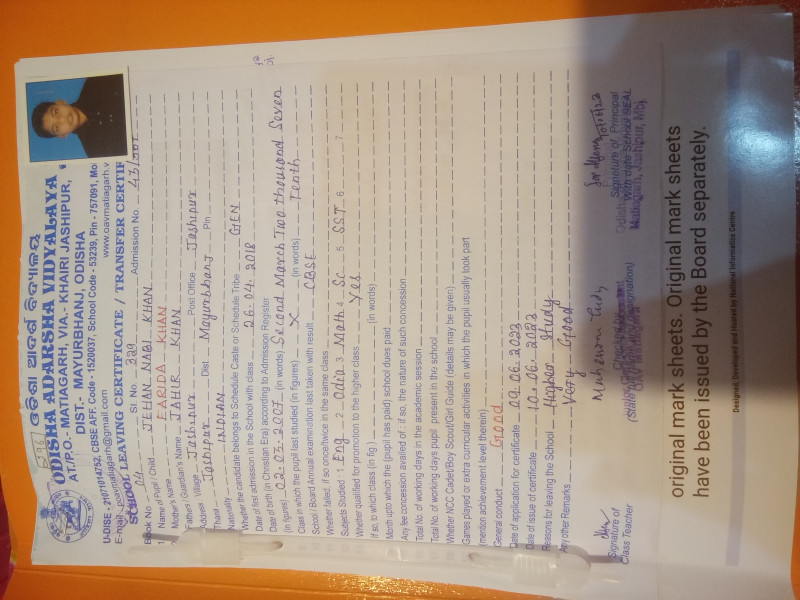 ଓଡ଼ିଶା ଆଦର୍ଶ ବିଦ୍ୟାଳୟ
ODISHA ADARSHA VIDYALAYA
AT/P.O.- MATIAGARH, VIA.- KHAIRI JASHIPUR,
DIST.- MAYURBHANJ, ODISHA
U-DISE - 21071014752, CBSE AFF. Code -1520037, School Code - 53239, Pin - 757091, Mo
E-mail - oavmatiagarh@gmail.com www.oavmatiagarh.v
SCHOOL LEAVING CERTIFICATE / TRANSFER CERTIF
Book No 04 Sl No. 329 Admission No. 43/
1 Name of Pupil / Child JEHAN NABI KHAN
Mother's Name FARIDA KHAN
Father's / Guardian's Name JAHIR KHAN
Address Village Jashipur Post Office Jashipur
Thana Jashipur Dist Mayurbhanj Pin
Nationality INDIAN
Whether the candidate belongs to Schedule Caste or Schedule Tribe GEN
Date of first admission in the School with class 26.04.2018
Date of birth (in Christian Era) according to Admission Register
(in figures) 02.03.2007 (in words) Second March Two thousand Seven
Class in which the pupil last studied (in figures) X (in words) Tenth
School / Board Annual examination last taken with result CBSE
Whether failed, if so once/twice in the same class
Subjects Studied 1 Eng 2 Odia 3 Math 4 Sc 5 SST 6 7
Whether qualified for promotion to the higher class Yes
If so, to which class (in fig ) (in words)
Month upto which the (pupil has paid) school dues paid
Any fee concession availed of : if so, the nature of such concession
Total No. of working days in the academic session
Total No. of working days pupil present in the school
Whether NCC Cadet/Boy Scout/Girl Guide (details may be given)
Games played or extra curricular activities in which the pupil usually took part
(mention achievement level therein)
General conduct Good
Date of application for certificate 09.06.2022
Date of issue of certificate 10.06.2022
Reasons for leaving the School Higher Study
Any other Remarks Very Good
Signature of
Class Teacher
Checked by
(State full name and designation)
10/6/22
Signature of Principal
With date School SEAL
Matiagarh, Jashipur, Mbj
original mark sheets. Original mark sheets
have been issued by the Board separately.
Designed, Developed and Hosted by National Informatics Centre